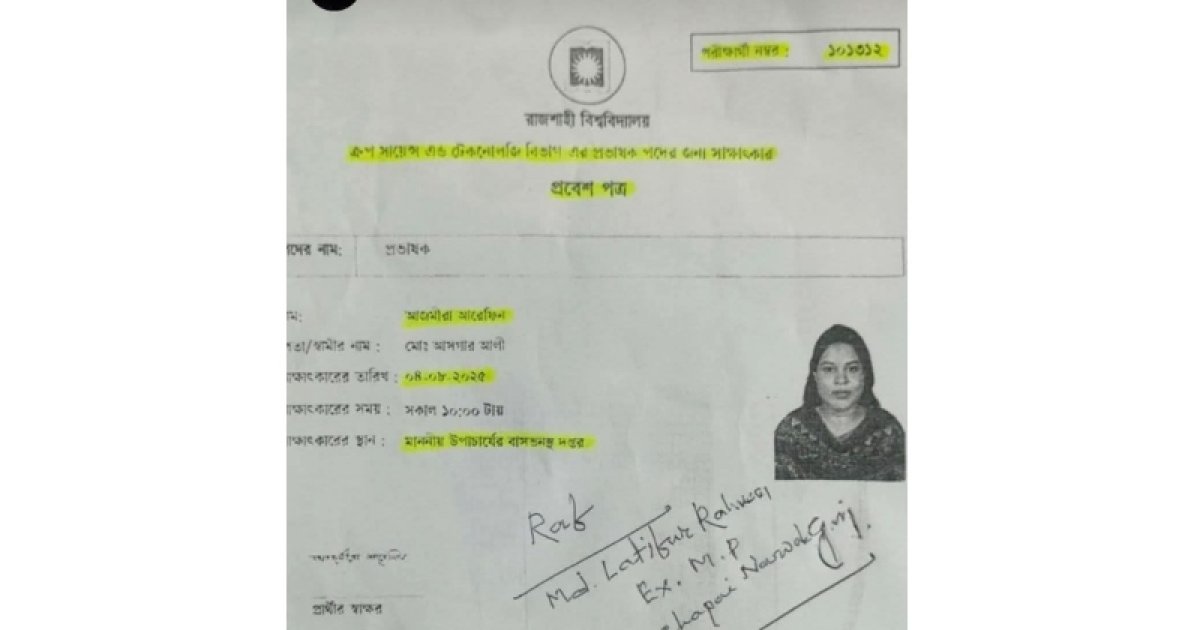 পরীক্ষার্থী নম্বর : ১০১৩১২
রাজশাহী বিশ্ববিদ্যালয়
ক্রপ সায়েন্স এন্ড টেকনোলজি বিভাগ এর প্রভাষক পদের জন্য সাক্ষাৎকার
প্রবেশ পত্র
পদের নাম: প্রভাষক
নাম: আজমীরা আরেফিন
পিতা/স্বামীর নাম : মোঃ আসগার আলী
সাক্ষাৎকারের তারিখ : ০৪-০৮-২০২৫
সাক্ষাৎকারের সময় : সকাল ১০:০০ টায়
সাক্ষাৎকারের স্থান : মাননীয় উপাচার্যের বাসভবনস্থ দপ্তর
Md. Latifur Rahman
Ex. M.P
প্রার্থীর স্বাক্ষর